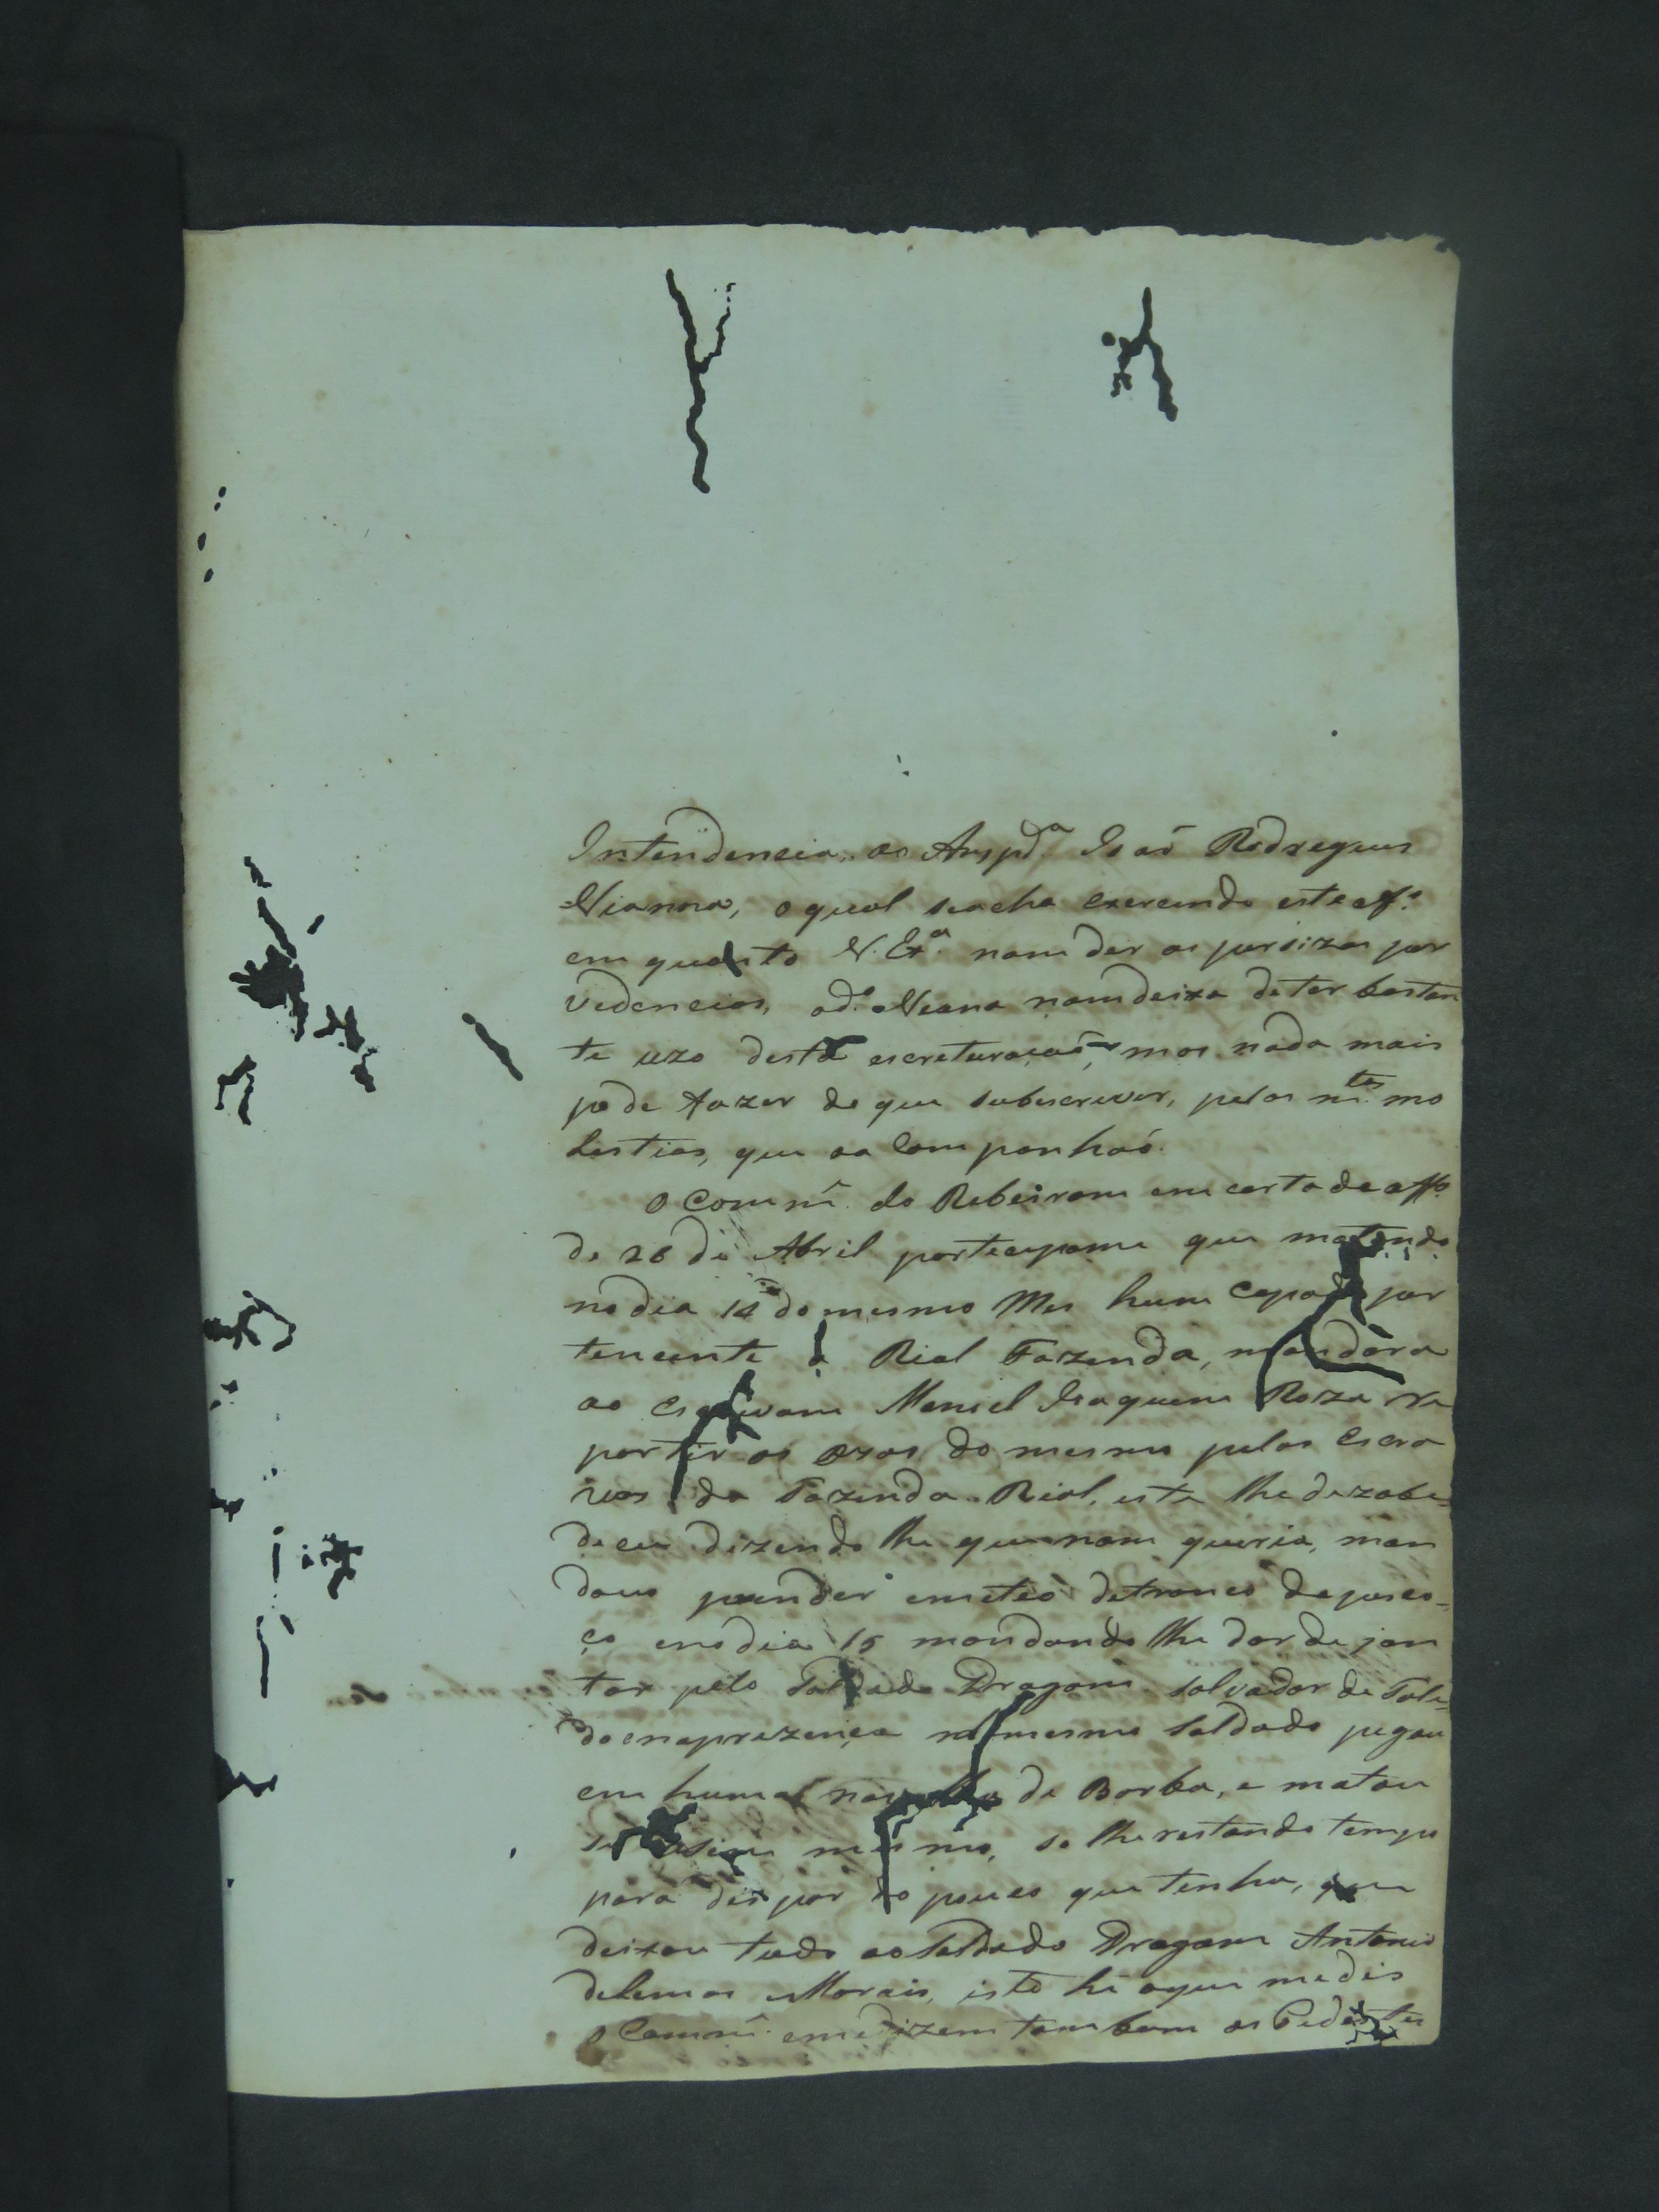 Intendencia, ao Anspd.ª Joaõ Rodregues
Vianna, oqual seacha exercendo esteoff.º
em quanto V. Ex.ª nam der as persizas por
vedencias, od.º Veana namdeixa deter bastan
te uzo desta escreturaçaõ, mas nada mais
pode fazer do que subescrever, pelas m.tas mo
lestias, que oa Companhaõ.
O Comm.e do Rebeiram em carta de off.º
de 26 de Abril partecipame que matando
nodia 14 do mesmo Mes hum Capado per
tencente á Rial Fazenda, mandàra
ao Escrivam Manuel Joaquem Roza re
partir os ozos do mesmo pelos Escra
vos da Fazenda Rial, este lhe dezobe=
deceu dizendo lhe que nam queria, man
douo prender emeteo detronco depesco=
ço enodia 15 mandando lhe dar de jan
tar pelo Soldado Dragam Salvador de Tole=
do enaprezença do mesmo Soldado pegou
em huma navalha de Borba, e matou
se asim mesmo, so lhe restando tempo
para dispor do pouco que tinha, que
deixou tudo ao Soldado Dragam Antonio
deLemos Morais, isto hé oque medis
o Comm.e emedizem tambem os Pedestes